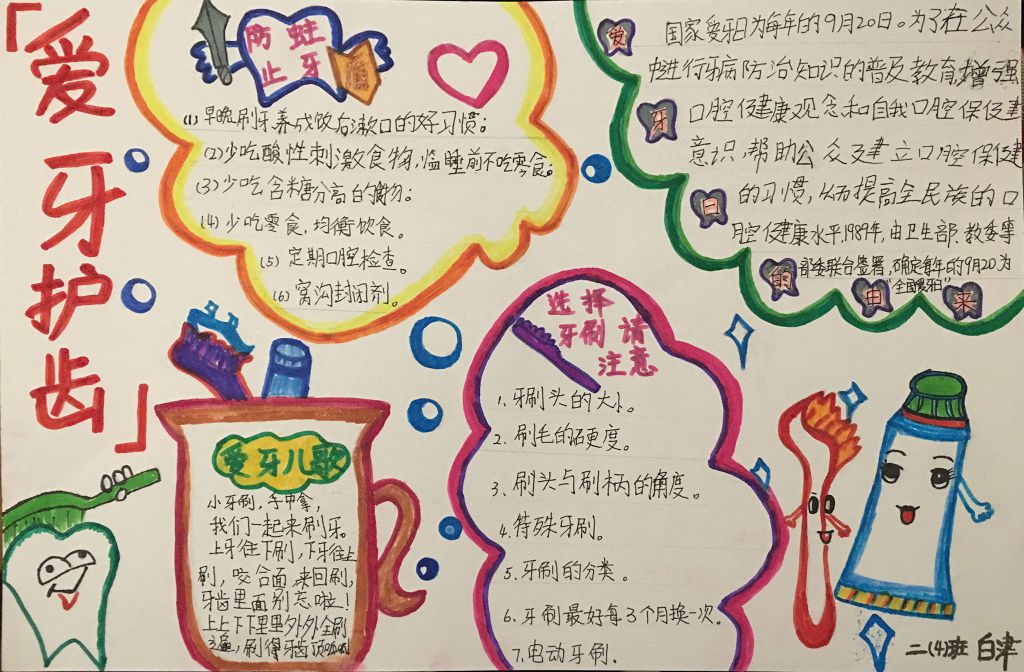 「爱牙护齿」
防蛀
止牙
(1)早晚刷牙养成饭后漱口的好习惯;
(2)少吃酸性刺激食物,临睡前不吃零食。
(3)少吃含糖分高的食物;
(4)少吃零食,均衡饮食。
(5)定期口腔检查。
(6)窝沟封闭剂。
爱牙日的由来
国家爱牙日为每年的9月20日。为了在公众
中进行牙病防治知识的普及教育,增强
口腔健康观念和自我口腔保健
意识,帮助公众建立口腔保健
的习惯,从而提高全民族的口
腔健康水平,1989年,由卫生部、教委等
部委联合签署,确定每年的9月20为
"全国爱牙日"
选择
牙刷请
注意
1、牙刷头的大小。
2、刷毛的硬度。
3、刷头与刷柄的角度。
4、特殊牙刷。
5、牙刷的分类。
6、牙刷最好每3个月换一次。
7、电动牙刷.
爱牙儿歌
小牙刷,手中拿,
我们一起来刷牙。
上牙往下刷,下牙往上
刷,咬合面来回刷,
牙齿里面别忘啦!
上上下下里里外外全刷
遍,刷得牙齿顶呱呱
二(4)班 白津